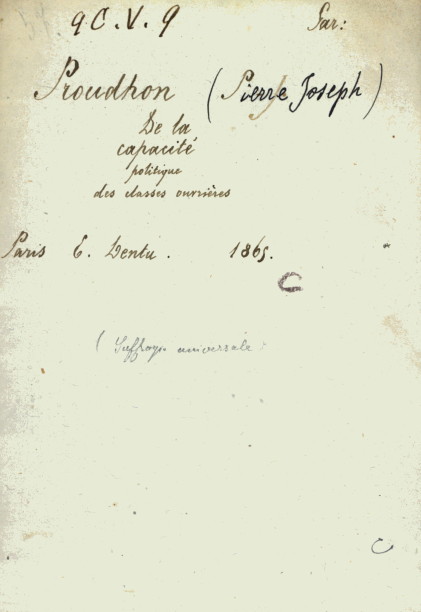 9 C. V. 9
Par:
Proudhon (Pierre Joseph)
De la
capacité
politique
des classes ouvrières
Paris E. Dentu. 1865. "
C
(Suffrage universele)
C